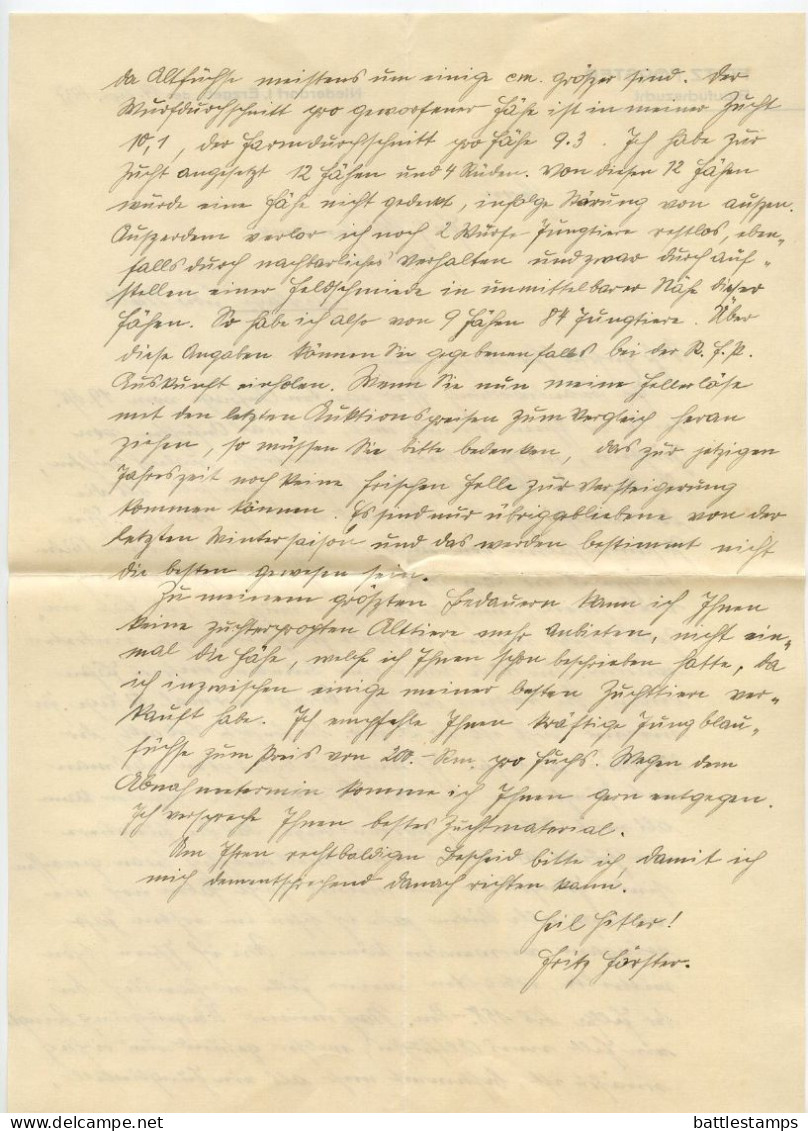 da Altfüchse meistens um einige cm. größer sind. Der
Wurfdurchschnitt pro geworfener Fähe ist in meiner Zucht
10,1, der Farmdurchschnitt pro Fähe 9.3. Ich habe zur
Zucht angesetzt 12 Fähen und 4 Rüden. Von diesen 12 Fähen
wurde eine Fähe nicht gedeckt, infolge Störung von außen.
Außerdem verlor ich noch 2 Würfe Jungtiere restlos, eben-
falls durch nachbarliches Verhalten und zwar durch Auf-
stellen einer Feldschmiede in unmittelbarer Nähe dieser
Fähen. So habe ich also von 9 Fähen 84 Jungtiere. Über
diese Angaben können Sie gegebenenfalls bei der R.F.P.
Auskunft einholen. Wenn Sie nun meine Fellerlöse
mit den letzten Auktionspreisen zum Vergleich heran
ziehen, so müssen Sie bitte bedenken, das zur jetzigen
Jahreszeit noch keine frischen Felle zur Versteigerung
kommen können. Es sind nur übriggebliebene von der
letzten Wintersaison und das werden bestimmt nicht
die besten gewesen sein.
Zu meinem größten Bedauern kann ich Ihnen
keine zuchterprobten Alttiere mehr anbieten, nicht ein-
mal die Fähe, welche ich Ihnen schon beschrieben hatte, da
ich inzwischen einige meiner besten Zuchttiere ver-
kauft habe. Ich empfehle Ihnen kräftige Jungblau-
füchse zum Preis von 200.- Rm. pro Fuchs. Wegen dem
Abnahmetermin komme ich Ihnen gern entgegen.
Ich verspreche Ihnen bestes Zuchtmaterial.
Um Ihren rechtbaldigen Bescheid bitte ich, damit ich
mich dementsprechend danach richten kann.
Heil Hitler!
Fritz Förster.
battlestamps